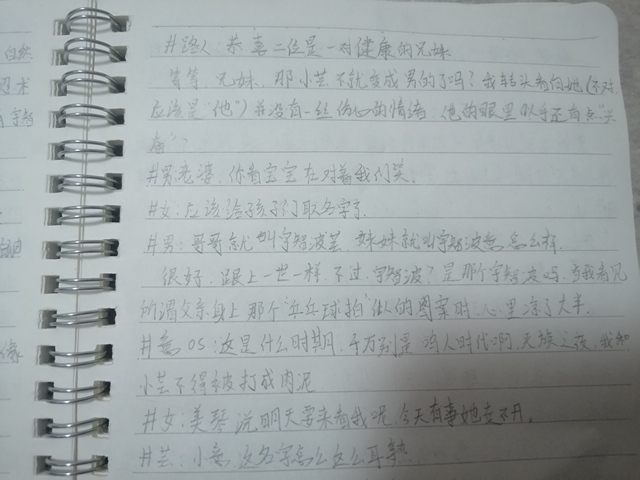 #路人:恭喜二位是一对健康的兄妹
等等,兄妹,那小芸不就变成男的了吗?我转头看向她(不对
应该是"他")并没有一丝伤心的情绪,他的眼里似乎还有点"兴
奋"?
#男:老婆,你看宝宝在对着我们笑.
#女:应该给孩子们取名字了.
#男:哥哥就叫宇智波芸 妹妹就叫宇智波 怎么样.
很好,跟上一世一样,不过,宇智波?是那个宇智波吗,当我看见
所谓父亲身上那个"乒乓球拍"似的图案时,心里凉了大半.
# OS:这是什么时期,千万别是鸣人时代啊,灭族之夜,我和
小芸不得被打成肉泥
#女:美琴说明天要来看我呢,今天有事她走不开.
#芸:小 ,这名字怎么这么耳熟
自然
忍术